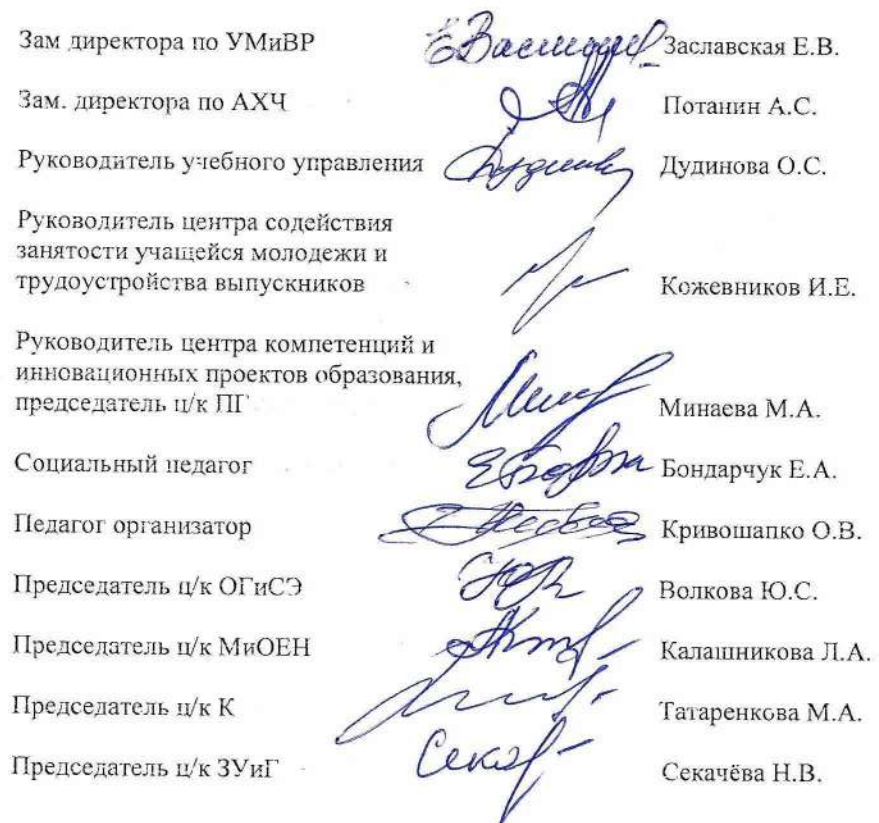 Зам директора по УМиВР Заславская Е.В.
Зам. директора по АХЧ Потанин А.С.
Руководитель учебного управления Дудинова О.С.
Руководитель центра содействия
занятости учащейся молодежи и
трудоустройства выпускников Кожевников И.Е.
Руководитель центра компетенций и
инновационных проектов образования,
председатель ц/к ПГ Минаева М.А.
Социальный педагог Бондарчук Е.А.
Педагог организатор Кривошапко О.В.
Председатель ц/к ОГиСЭ Волкова Ю.С.
Председатель ц/к МиОЕН Калашникова Л.А.
Председатель ц/к К Татаренкова М.А.
Председатель ц/к ЗУиГ Секачёва Н.В.